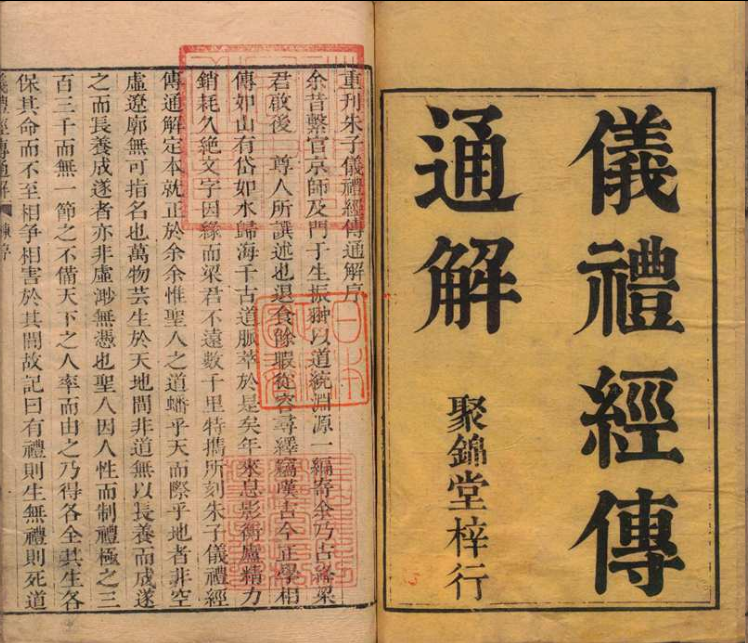 儀禮經傳
通解
聚錦堂梓行
重刊朱子儀禮經傳通解序
余昔繫官京師及門于生振翀以道統淵源一編寄余乃古絳梁
君啟後一尊人所譔述也退食餘暇從容尋繹竊嘆古今正學相
傳如山有岱如水歸海千古道脈萃於是矣年來息影衡廬精力
銷耗久絶文字因緣而梁君不遠數千里特攜所刻朱子儀禮經
傳通解定本就正於余余惟聖人之道蟠乎天而際乎地者非空
虛遼廓無可指名也萬物芸生於天地間非道無以長養而成遂
之而長養成遂者亦非虛渺無憑也聖人因人性而制禮極之三
百三千而無一節之不備天下之人率而由之乃得各全其生各
保其命而不至相爭相害於其間故記曰有禮則生無禮則死道
儀禮經傳通解
序